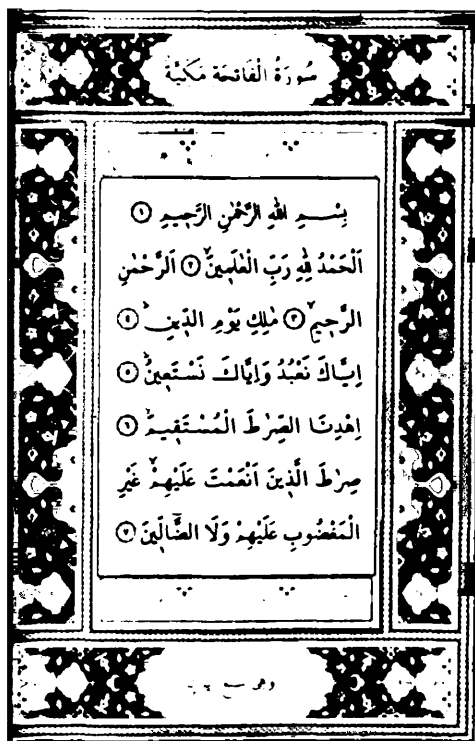 سُورَةُ الْفَاتِحَةِ مَكِّيَّةٌ
بِسْمِ اللهِ الرَّحْمٰنِ الرَّحِيمِ ١
اَلْحَمْدُ لِلّٰهِ رَبِّ الْعَالَمِينَۙ ٢ اَلرَّحْمٰنِ
الرَّحِيمِۙ ٣ مَالِكِ يَوْمِ الدِّينِۜ ٤
اِيَّاكَ نَعْبُدُ وَاِيَّاكَ نَسْتَعِينُۜ ٥
اِهْدِنَا الصِّرَاطَ الْمُسْتَقِيمَۙ ٦
صِرَاطَ الَّذِينَ اَنْعَمْتَ عَلَيْهِمْۙ غَيْرِ
الْمَغْضُوبِ عَلَيْهِمْ وَلَا الضَّٓالِّينَ ٧
وهى سبع